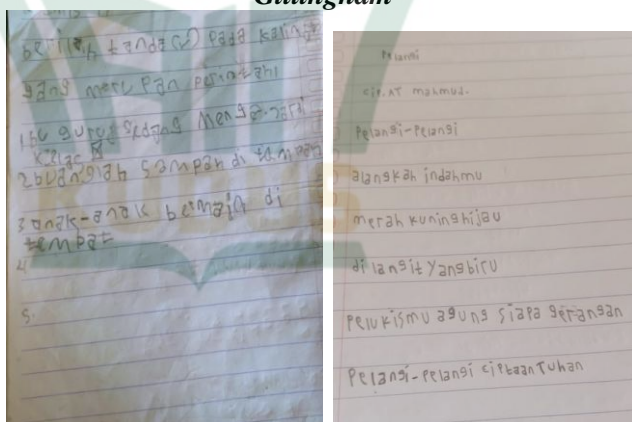 Gillingham
berilah tanda (✓) pada kalimat
yang meru pan perintah!
1 Ibu guru sedang mengajari
kelas
2 buanglah sampah di tempat
3 anak-anak bermain di
tempat
4
5.
Pelangi
cip. AT mahmud.
Pelangi-Pelangi
alangkah indahmu
merah kuninghijau
di langit yangbiru
Pelukismu agung siapa gerangan
Pelangi-Pelangi ciptaan Tuhan